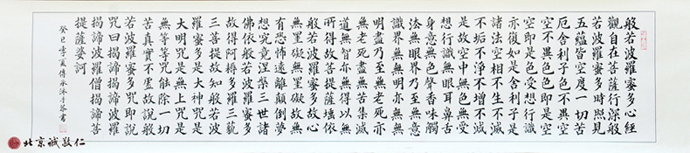 般若波羅蜜多心經
觀自在菩薩行深般
若波羅蜜多時照見
五蘊皆空度一切苦
厄舍利子色不異空
空不異色色即是空
空即是色受想行識
亦復如是舍利子是
諸法空相不生不滅
不垢不淨不增不減
是故空中無色無受
想行識無眼耳鼻舌
身意無色聲香味觸
法無眼界乃至無意
識界無無明亦無無
明盡乃至無老死亦
無老死盡無苦集滅
道無智亦無得以無
所得故菩提薩埵依
般若波羅蜜多故心
無罣礙無罣礙故無
有恐怖遠離顛倒夢
想究竟涅槃三世諸
佛依般若波羅蜜多
故得阿耨多羅三藐
三菩提故知般若波
羅蜜多是大神咒是
大明咒是無上咒是
無等等咒能除一切
苦真實不虛故說般
若波羅蜜多咒即說
咒曰揭諦揭諦波羅
揭諦波羅僧揭諦菩
提薩婆訶
癸巳季夏傅書
北京誠敬仁